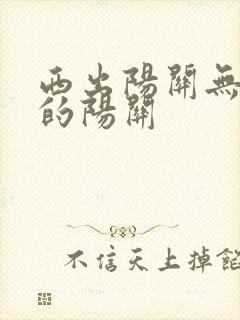 西出陽關無
的陽關
不信天上掉餡